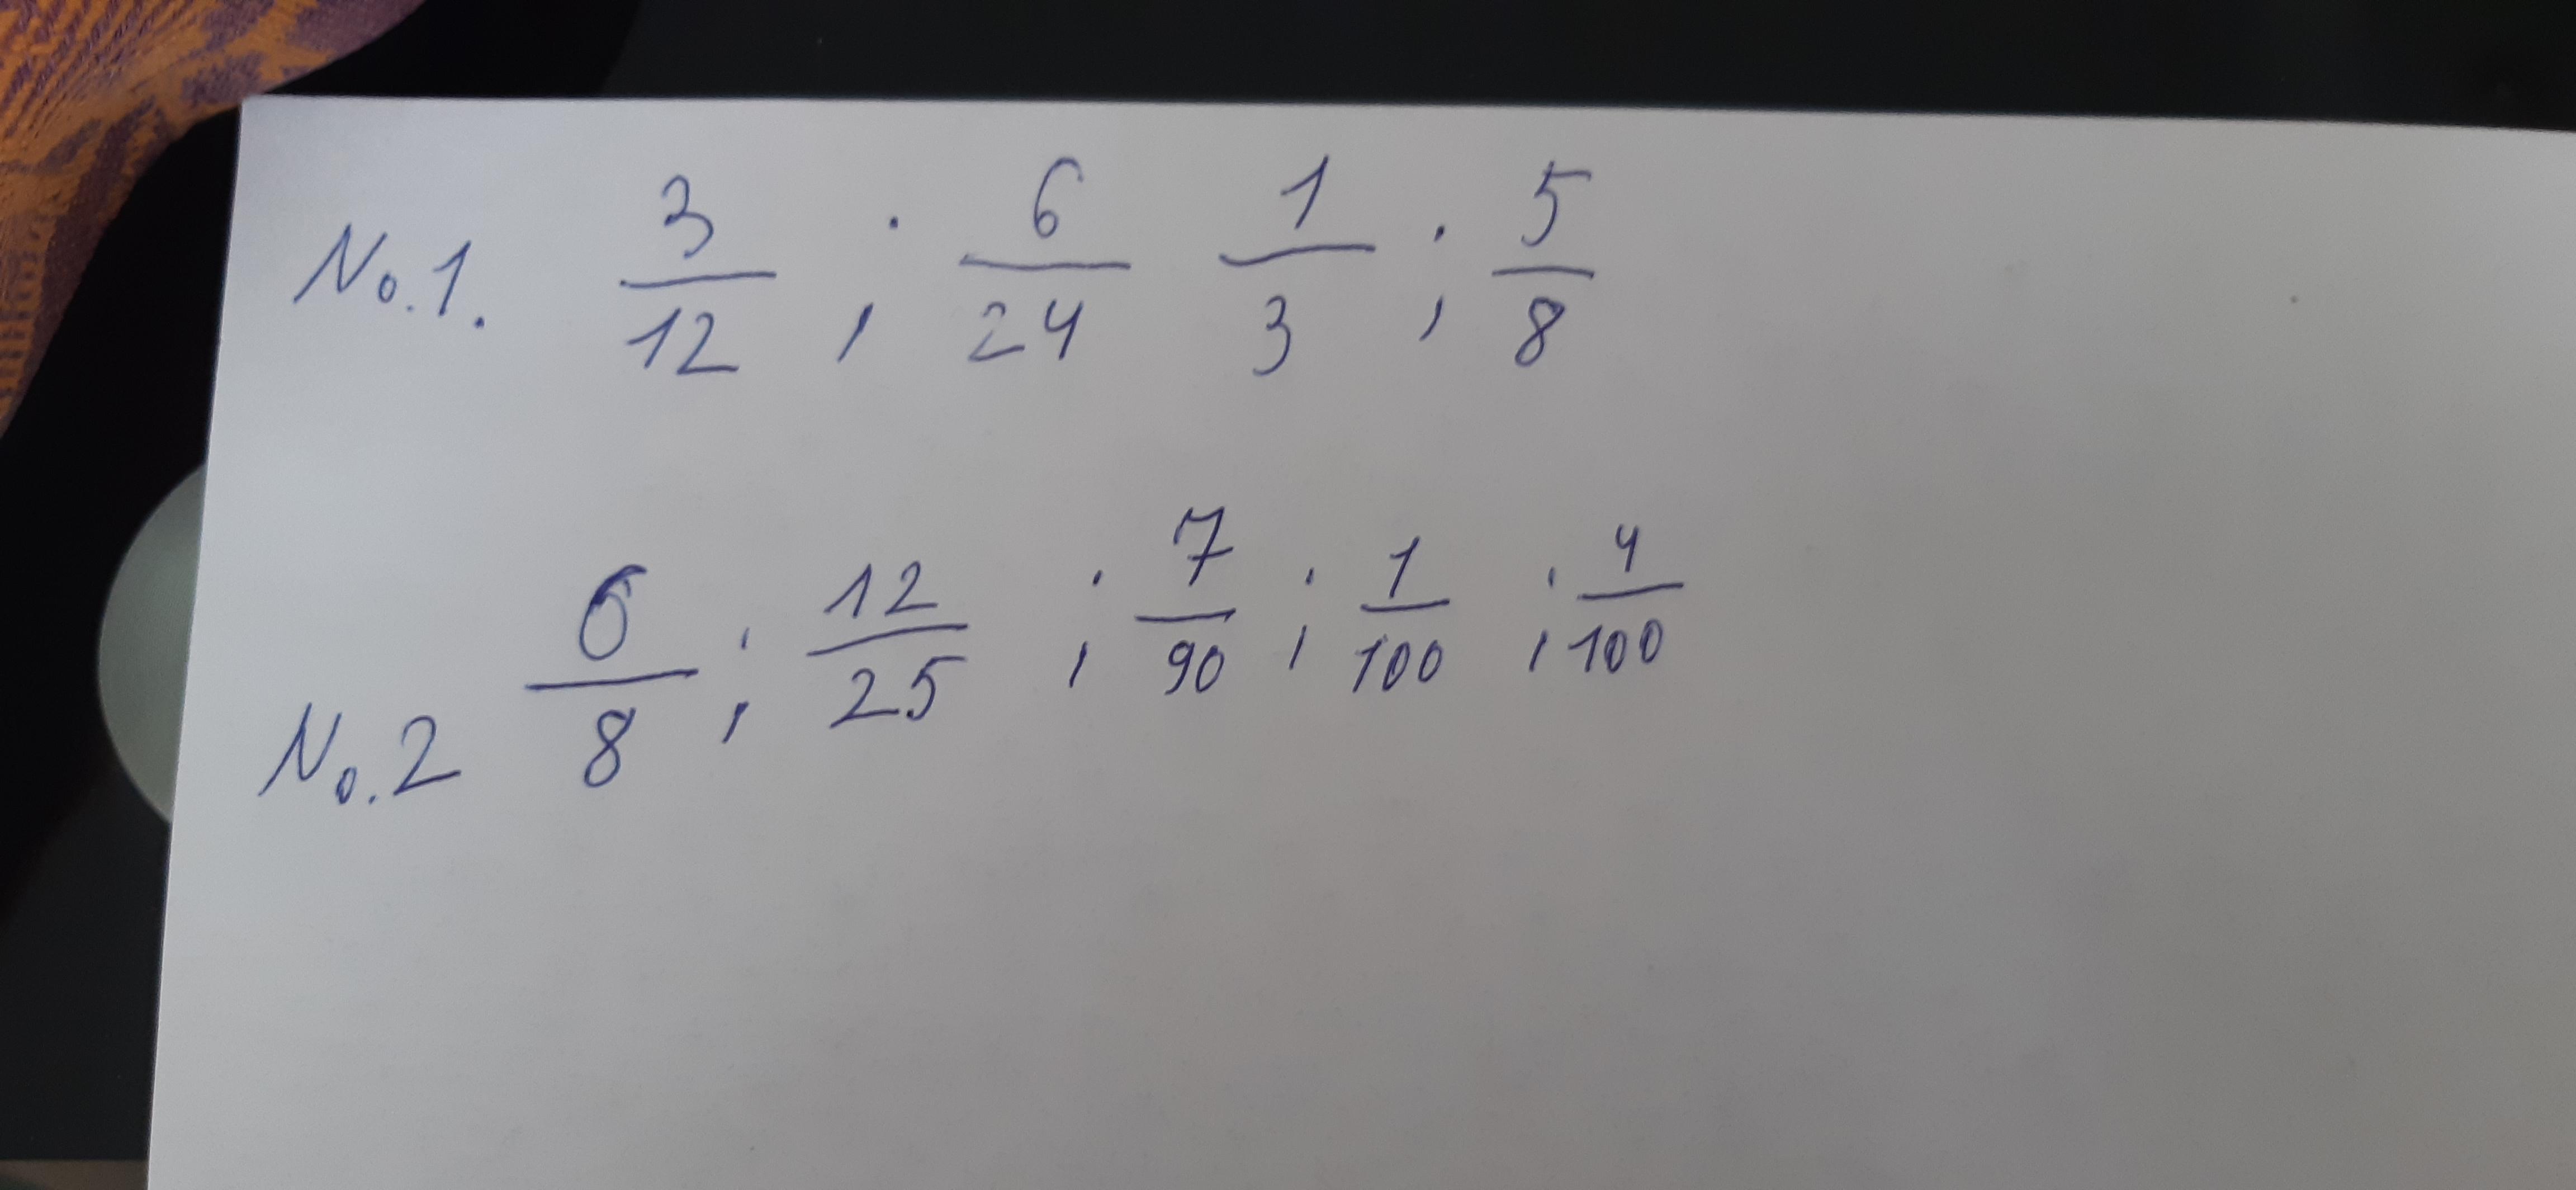 No.1. 3/12 ; 6/24 1/3 ; 5/8
No.2 6/8 ; 12/25 ; 7/90 ; 1/100 ; 4/100